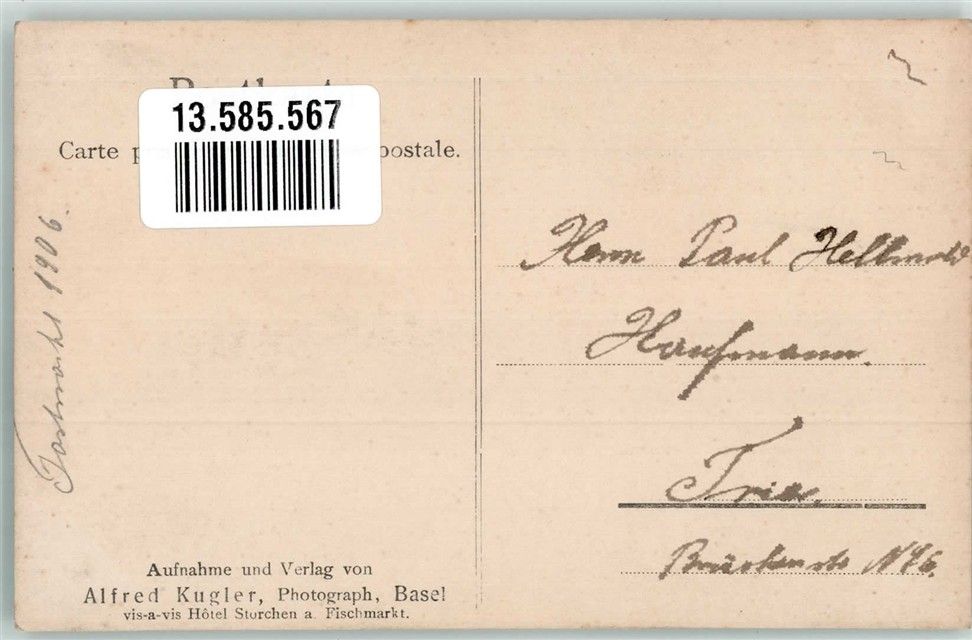 13.585.567
Carte postale.
1906.
Herrn Paul
Kaufmann.
Trier.
Aufnahme und Verlag von
Alfred Kugler, Photograph, Basel
vis-a-vis Hôtel Storchen a. Fischmarkt.